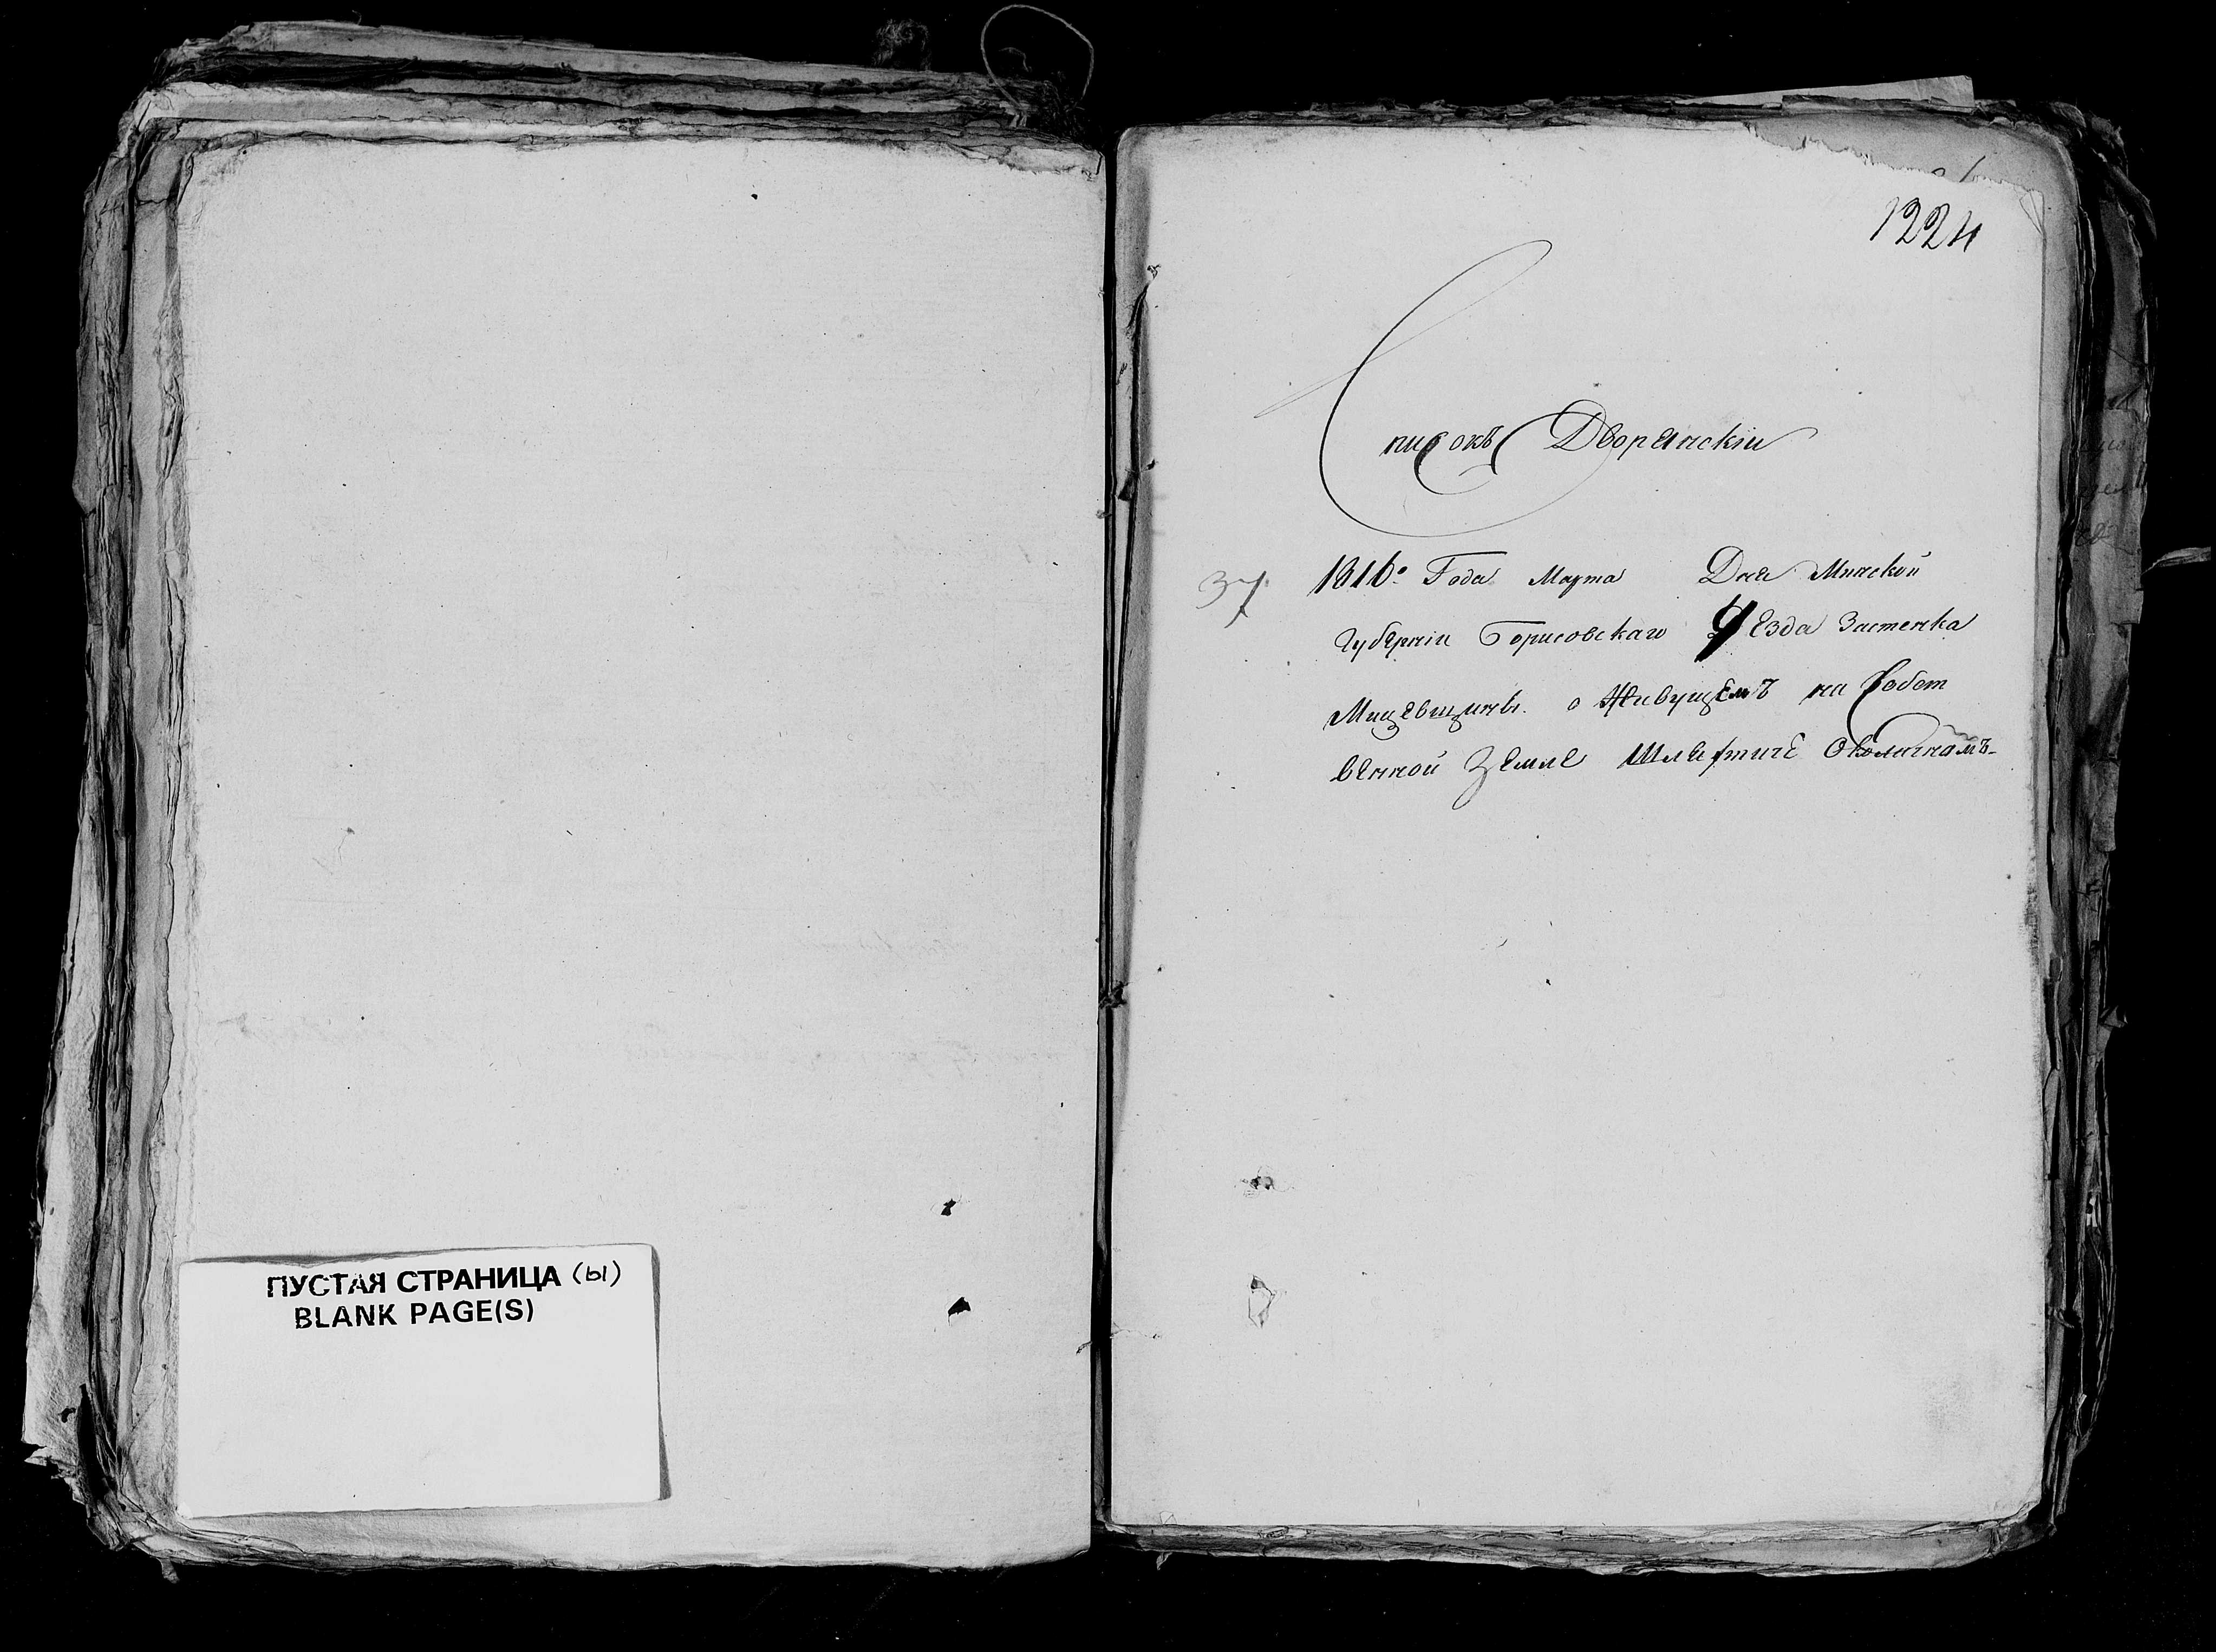 ПУСТАЯ СТРАНИЦА (ы)
BLANK PAGE(S)
1224
Списокъ Дворянскiи
37 1816º Года Марта Дня Минской
Губернiи Борисовскаго Уезда Застенка
Мицевщины о Живущемъ на Собст
венной Земле Шляхтиче